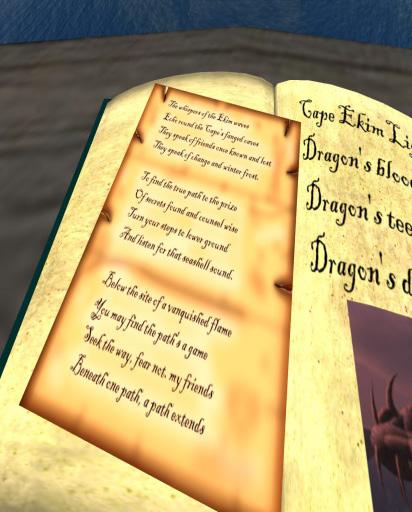 The whispers of the Ekim waves
Echo round the Cape's fanged caves
They speak of friends once known and lost
They speak of change and winter frost.
To find the true path to the prize
Of secrets found and counsel wise
Turn your steps to lower ground
And listen for that seashell sound.
Below the site of a vanquished flame
You may find the path's a game
Seek the way, fear not, my friends
Beneath one path, a path extends
Cape Ekim
Dragon's
Dragon's
Dragon's